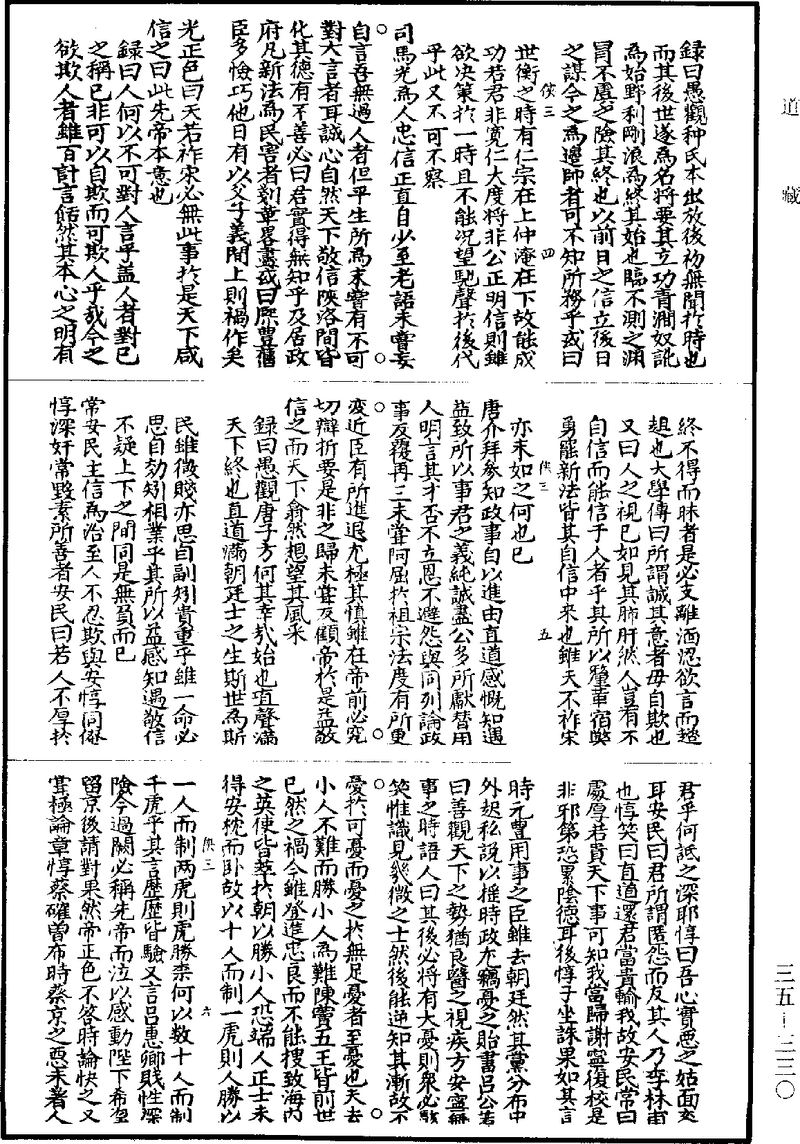 道藏
錄曰愚觀种氏本出放後初無聞扵時也
而其後世遂為名將要其立功青澗奴訛
為始野利剛浪為終其始也臨不測之淵
冒不虞之險其終也以前日之信立後日
之謀今之為邊帥者可不知所務乎或曰
俠三 四
世衡之時有仁宗在上仲淹在下故能成
功若君非寬仁大度將非公正明信則雖
欲决策扵一時且不能况望馳聲扵後代
乎此又不可不察
司馬光為人忠信正直自少至老語未嘗妄
自言吾無過人者但平生所為未嘗有不可
對大言者耳誠心自然天下敬信陝洛間皆
化其德有不善必曰君實得無知乎及居政
府凡新法為民害者剗革畧盡或曰熙豐舊
臣多憸巧他日有以父子義間上則禍作矣
光正色曰天若祚宋必無此事扵是天下咸
信之曰此先帝本意也
錄曰人何以不可對人言乎盖人者對已
之稱已非可以自欺而可欺人乎哉今之
欲欺人者雖百計言餂然其本心之明有
終不得而昧者是必支離洒涊欲言而趑
趄也大學傳曰所謂誠其意者毋自欺也
又曰人之視已如見其肺肝然人豈有不
自信而能信于人者乎其所以釐革宿獘
勇罷新法皆其自信中来也雖天不祚宋
俠三 五
亦末如之何也已
唐介拜參知政事自以進由直道感慨知遇
益致所以事君之義純誠盡公多所獻替用
人明言其才否不立恩不避怨與同列論政
事反覆再三未嘗阿屈扵祖宗法度有所更
變近臣有所進退尤極其慎雖在帝前必究
切辯折要是非之歸未嘗反顧帝扵是益敬
信之而天下翕然想望其風采
錄曰愚觀唐子方何其幸哉始也直聲滿
天下終也直道滿朝廷士之生斯世為斯
民雖微賤亦思自副矧貴重乎雖一命必
思自効矧相業乎其所以益感知遇敬信
不疑上下之間同是無負而已
常安民主信為治至人不忍欺與安惇同僚
惇深奸常毀素所善者安民曰若人不厚扵
君乎何詆之深耶惇曰吾心實惡之姑面交
耳安民曰君所謂匿怨而友其人乃李林甫
也惇笑曰直道還君富貴輸我故安民常曰
處厚若貴天下事可知我當歸謝寧復校是
非邪第恐累陰德耳後惇子坐誅果如其言
時元豐用事之臣雖去朝廷然其黨分布中
外起私說以揺時政亦竊憂之貽書吕公著
曰善觀天下之勢猶良醫之視疾方安寧無
事之時語人曰其後必將有大憂則衆必駭
笑惟識見幾微之士然後能逆知其漸故不
憂扵可憂而憂之扵無足憂者至憂也天去
小人不難而勝小人為難陳竇五王皆前世
已然之禍今雖登進忠良而不能搜致海内
之英使皆萃扵朝以勝小人恐端人正士未
得安枕而卧故以十人而制一虎則人勝以
一人而制两虎則虎勝柰何以数十人而制
俠三 六
千虎乎其言歷歷皆驗又言吕惠卿賎性深
險今過闕必稱先帝而泣以感動陛下希望
留京後請對果然帝正色不答時論快之又
甞極論章惇蔡確曽布時蔡京之惡未著人
三五－二三〇